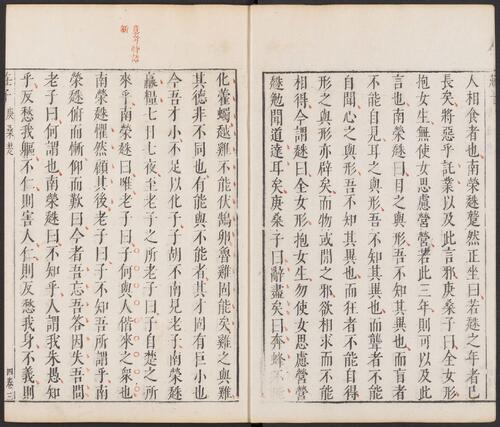 人相食者也南榮趎蹵然正坐曰若趎之年者已
長矣將惡乎託業以及此言邪庚桑子曰全女形
抱女生無使女思慮營營若此三年則可以及此
言也南榮趎曰目之與形吾不知其異也而盲者
不能自見耳之與形吾不知其異也而聾者不能
自聞心之與形吾不知其異也而狂者不能自得
形之與形亦辟矣而物或間之邪欲相求而不能
相得今謂趎曰全女形抱女生勿使女思慮營營
趎勉聞道達耳矣庚桑子曰辭盡矣曰奔蜂不能
化藿蠋越雞不能伏鵠卵魯雞固能矣雞之與雞
其德非不同也有能與不能者其才固有巨小也
今吾才小不足以化子子胡不南見老子南榮趎
贏糧七日七夜至老子之所老子曰子自楚之所
來乎南榮趎曰唯老子曰子何與人偕來之衆也
南榮趎懼然顧其後老子曰子不知吾所謂乎南
榮趎俯而慚仰而歎曰今者吾忘吾答因失吾問
老子曰何謂也南榮趎曰不知乎人謂我朱愚知
乎反愁我軀不仁則害人仁則反愁我身不義則
庚桑楚
四卷三